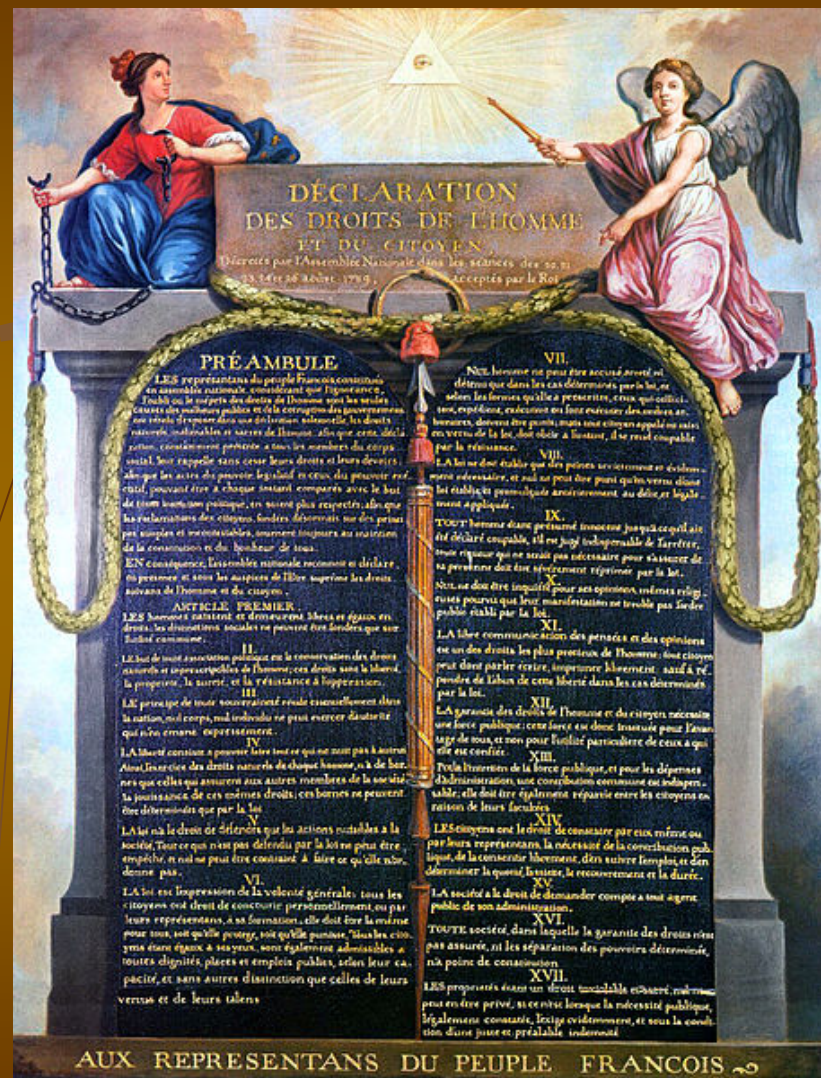 DÉCLARATION
DES DROITS DE L'HOMME
ET DU CITOYEN,
Décretés par l'Assemblée Nationale dans les séances des 20, 21
23, 24 et 26 août 1789, Acceptés par le Roi
PRÉAMBULE
LES représentans du peuple François, constitués
en assemblée nationale, considérant que l'ignorance,
l'oubli ou le mépris des droits de l'homme sont les seules
causes des malheurs publics et de la corruption des gouvernemens
ont résolu d'exposer dans une déclaration solemnelle, les droits
naturels, inaliénables et sacrés de l'homme; afin que cette décla
ration, constamment présente a tous les membres du corps
social, leur rappelle sans cesse leurs droits et leurs devoirs;
afin que les actes du pouvoir législatif et ceux du pouvoir exé
cutif, pouvant être à chaque instant comparés avec le but
de toute institution politique, en soient plus respectés; afin que
les réclamations des citoyens, fondées désormais sur des princi
pes simples et incontestables, tournent toujours au maintien
de la constitution et du bonheur de tous.
EN conséquence, l'assemblée nationale reconnoît et déclare
en présence et sous les auspices de l'Etre suprême les droits
suivans de l'homme et du citoyen.
ARTICLE PREMIER.
LES hommes naissent et demeurent libres et égaux en
droits; les distinctions sociales ne peuvent être fondées que sur
l'utilité commune.
II.
LE but de toute association politique est la conservation des droits
naturels et imprescriptibles de l'homme; ces droits sont la liberté,
la propriété, la sureté, et la résistance à l'oppression.
III
LE principe de toute souveraineté réside essentiellement dans
la nation, nul corps, nul individu ne peut exercer d'autorité
qui n'en emane expressement.
IV
LA liberté consiste a pouvoir faire tout ce qui ne nuit pas à autrui
Ainsi, l'exercice des droits naturels de chaque homme, n'a de bor
nes que celles qui assurent aux autres membres de la société
la jouissance de ces mêmes droits; ces bornes ne peuvent
être déterminées que par la loi
V
LA loi n'a le droit de défendre que les actions nuisibles à la
société. Tout ce qui n'est pas défendu par la loi ne peut être
empêché, et nul ne peut être contraint à faire ce qu'elle n'or-
donne pas.
VI.
LA loi est l'expression de la volonté générale; tous les
citoyens ont droit de concourir personnellement, ou par
leurs représentans, à sa formation; elle doit être la même
pour tous, soit qu'elle protege, soit qu'elle punisse, Tous les cito
yens étant égaux à ses yeux, sont également admissibles a
toutes dignités, places et emplois publics, selon leur ca
pacité, et sans autres distinction que celles de leurs
vertus et de leurs talens
VII.
NUL homme ne peut être accusé, arreté, ni
détenu que dans les cas déterminés par la loi, et
selon les formes qu'elle à prescrites, ceux qui sollici-
tent, expédient, exécutent ou font exécuter des ordres ar-
bitraires, doivent être punis; mais tout citoyen appelé ou saisi
en vertu de la loi, doit obéir a l'instant, il se rend coupable
par la résistance.
VIII.
LA loi ne doit établir que des peines strictement et évidem-
ment nécessaire, et nul ne peut être puni qu'en vertu d'une
loi établie et promulguée antérierement au délit, et légale
ment appliquée.
IX.
TOUT homme étant présumé innocent jusqu'à ce qu'il ait
été déclaré coupable, s'il est jugé indispensable de l'arrêter,
toute rigueur qui ne serait pas nécessaire pour s'assurer de
sa personne doit être sévèrement réprimée par la loi.
X.
NUL ne doit être inquiété pour ses opinions, mêmes religi
euses pourvu que leur manifestation ne trouble pas l'ordre
public établi par la loi.
XI.
LA libre communication des pensées et des opinions
est un des droits les plus précieux de l'homme; tout citoyen
peut donc parler écrire, imprimer librement, sauf à ré
pondre de l'abus de cette liberté dans les cas déterminés
par la loi.
XII.
LA garantie des droits de l'homme et du citoyen nécessite
une force publique; cette force est donc instituée pour l'avan
tage de tous, et non pour l'utilité particuliere de ceux à qui
elle est confiée.
XIII.
Pour l'entretien de la force publique, et pour les dépenses
d'administration, une contribution commune est indispen-
sable; elle doit être également répartie entre les citoyens en
raison de leurs facultées
XIV.
LES citoyens ont le droit de constater par eux même ou
par leurs représentans, la nécessité de la contribution pub-
lique, de la consentir librement, d'en suivre l'emploi, et d'en
déterminer la quotité, l'assiette, le recouvrement et la durée.
XV.
LA société a le droit de demander compte a tout agent
public de son administration.
XVI.
TOUTE société, dans laquelle la garantie des droits n'est
pas assurée, ni les séparation des pouvoirs déterminée,
n'a point de constitution
XVII.
LES propriétés étant un droit inviolable et sacré, nul ne
peut en être privé, si ce n'est lorsque la nécessité publique,
légalement constatée, l'exige evidemment, et sous la condi-
tion d'une juste et préalable indemnité
AUX REPRESENTANS DU PEUPLE FRANCOIS